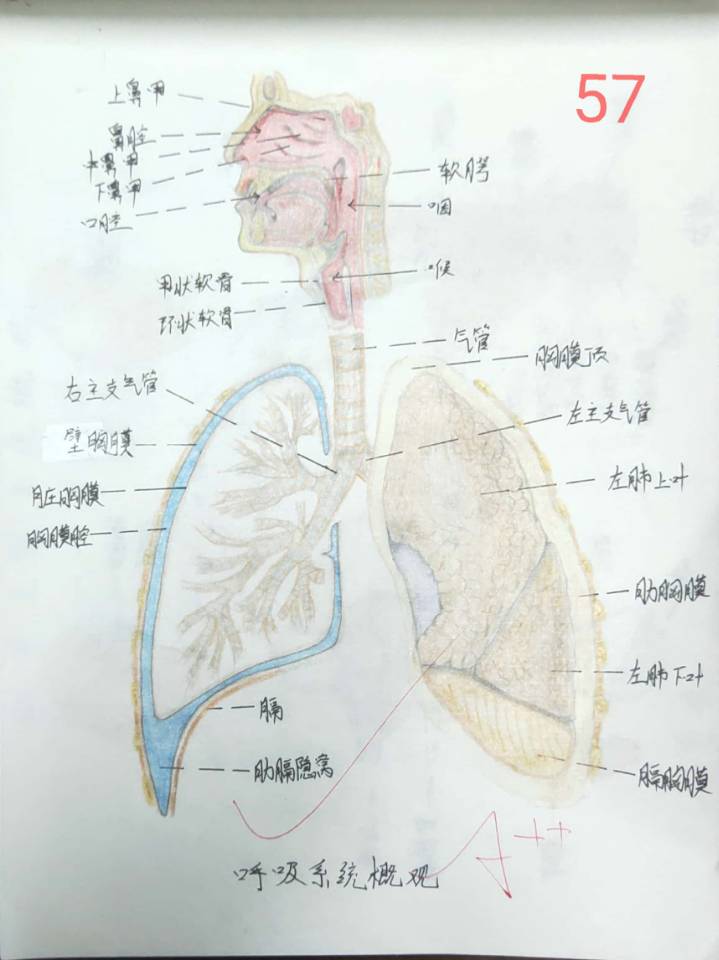 57
上鼻甲
鼻腔
中鼻甲
下鼻甲
口腔
软腭
咽
甲状软骨
喉
环状软骨
气管
胸膜顶
右主支气管
左主支气管
壁胸膜
左肺上叶
脏胸膜
胸膜腔
肋胸膜
左肺下叶
膈
肋膈隐窝
膈胸膜
A++
呼吸系统概观